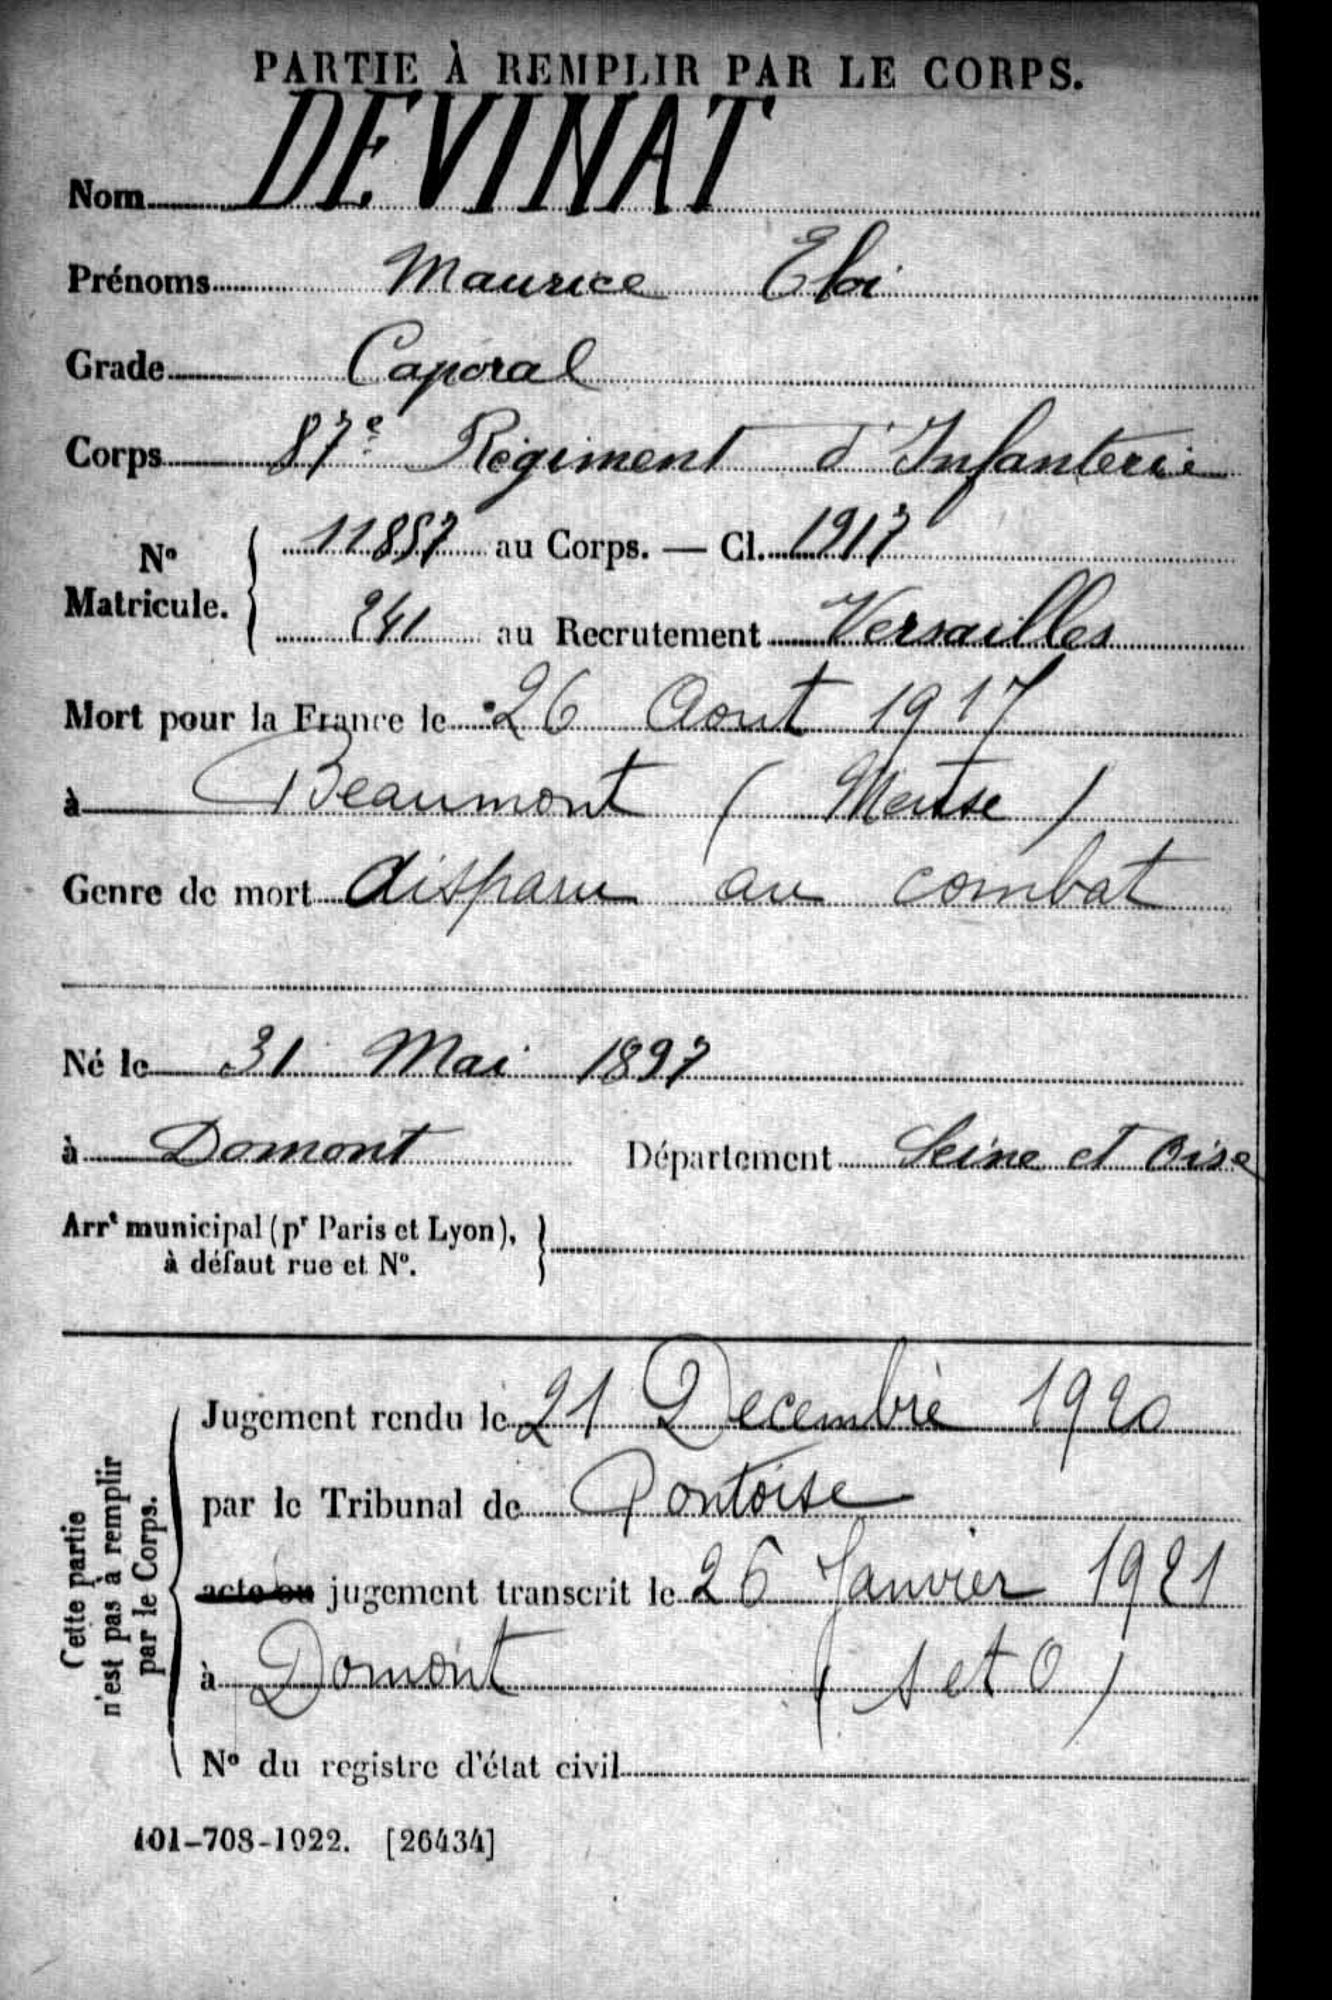 PARTIE À REMPLIR PAR LE CORPS.
Nom DEVINAT
Prénoms Maurice Eloi
Grade Caporal
Corps 87e Régiment d'Infanterie
No Matricule. { 11857 au Corps. — Cl. 1917
241 au Recrutement Versailles
Mort pour la France le 26 Aout 1917
à Beaumont (Meuse)
Genre de mort disparu au combat
Né le 31 Mai 1897
à Domont Département Seine et Oise
Arrt municipal (pr Paris et Lyon), }
à défaut rue et No.
Cette partie
n'est pas à remplir
par le Corps.
Jugement rendu le 21 Decembre 1920
par le Tribunal de Pontoise
acte ou jugement transcrit le 26 Janvier 1921
à Domont (S et O)
No du registre d'état civil
101-708-1922. [26434]